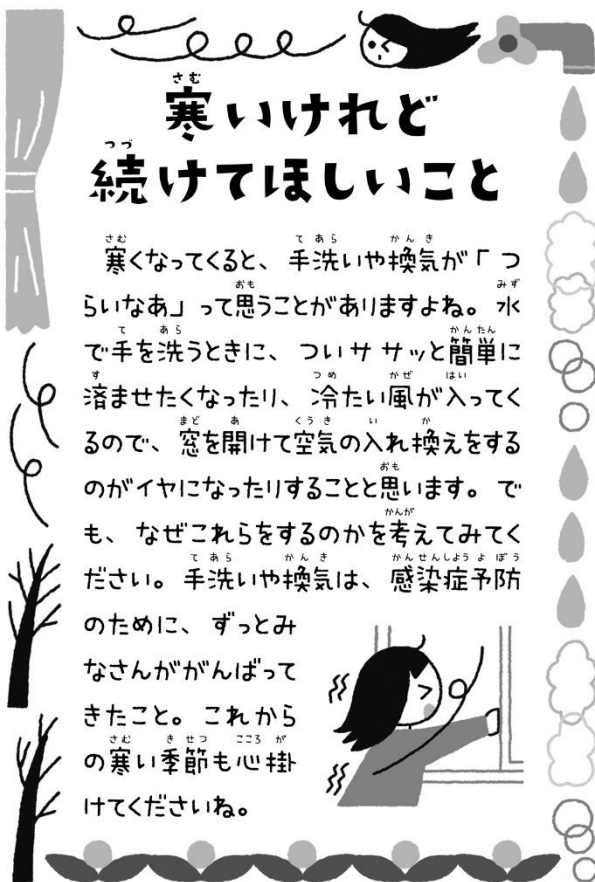 寒いけれど
続けてほしいこと
寒くなってくると、手洗いや換気が「つ
らいなあ」って思うことがありますよね。水
で手を洗うときに、ついササッと簡単に
済ませたくなったり、冷たい風が入ってく
るので、窓を開けて空気の入れ換えをする
のがイヤになったりすることと思います。で
も、なぜこれらをするのかを考えてみてく
ださい。手洗いや換気は、感染症予防
のために、ずっとみ
なさんががんばって
きたこと。これから
の寒い季節も心掛
けてくださいね。